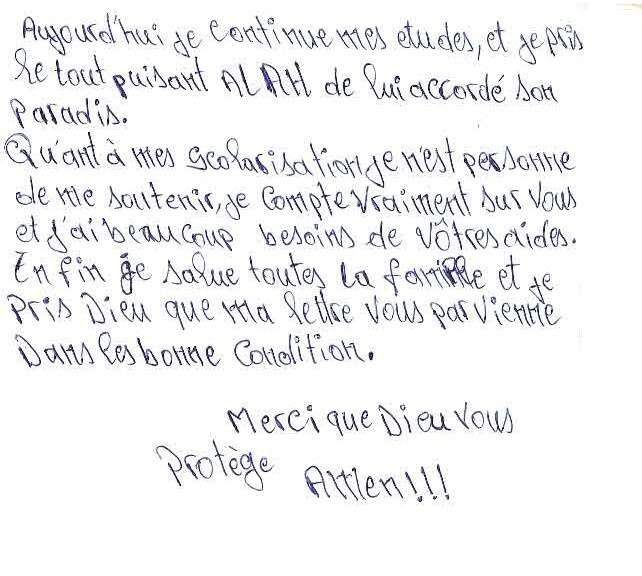 Aujourd'hui je continue mes etudes, et je pris
le tout puisant ALAH de lui accordé son
Paradis.
Qu'ant à mes scolarisation je n'est personne
de me soutenir, je compte vraiment sur vous
et j'ai beaucoup besoins de vôtres aides.
Enfin je salue toutes la famille et je
Pris Dieu que ma lettre vous parvienne
Dans les bonne Condition.
Merci que Dieu vous
Protège Amen!!!